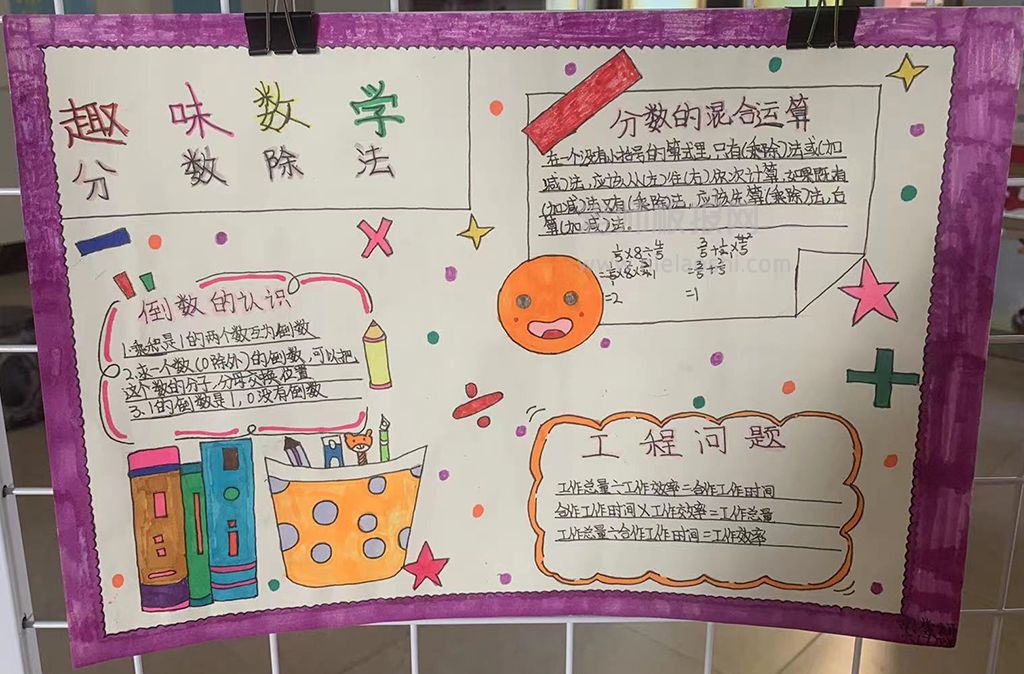 趣味数学
分数除法
倒数的认识
1.乘积是1的两个数互为倒数
2.求一个数(0除外)的倒数,可以把
这个数的分子,分母交换位置
3.1的倒数是1,0没有倒数
分数的混合运算
在一个没有小括号的算式里,只有(乘除)法或(加
减)法,应该从(左)往(右)依次计算,如果既有
(加减)法又有(乘除)法,应该先算(乘除)法,后
算(加减)法。
=2
=1
工程问题
工作总量÷工作效率=合作工作时间
合作工作时间×工作效率=工作总量
工作总量÷合作工作时间=工作效率